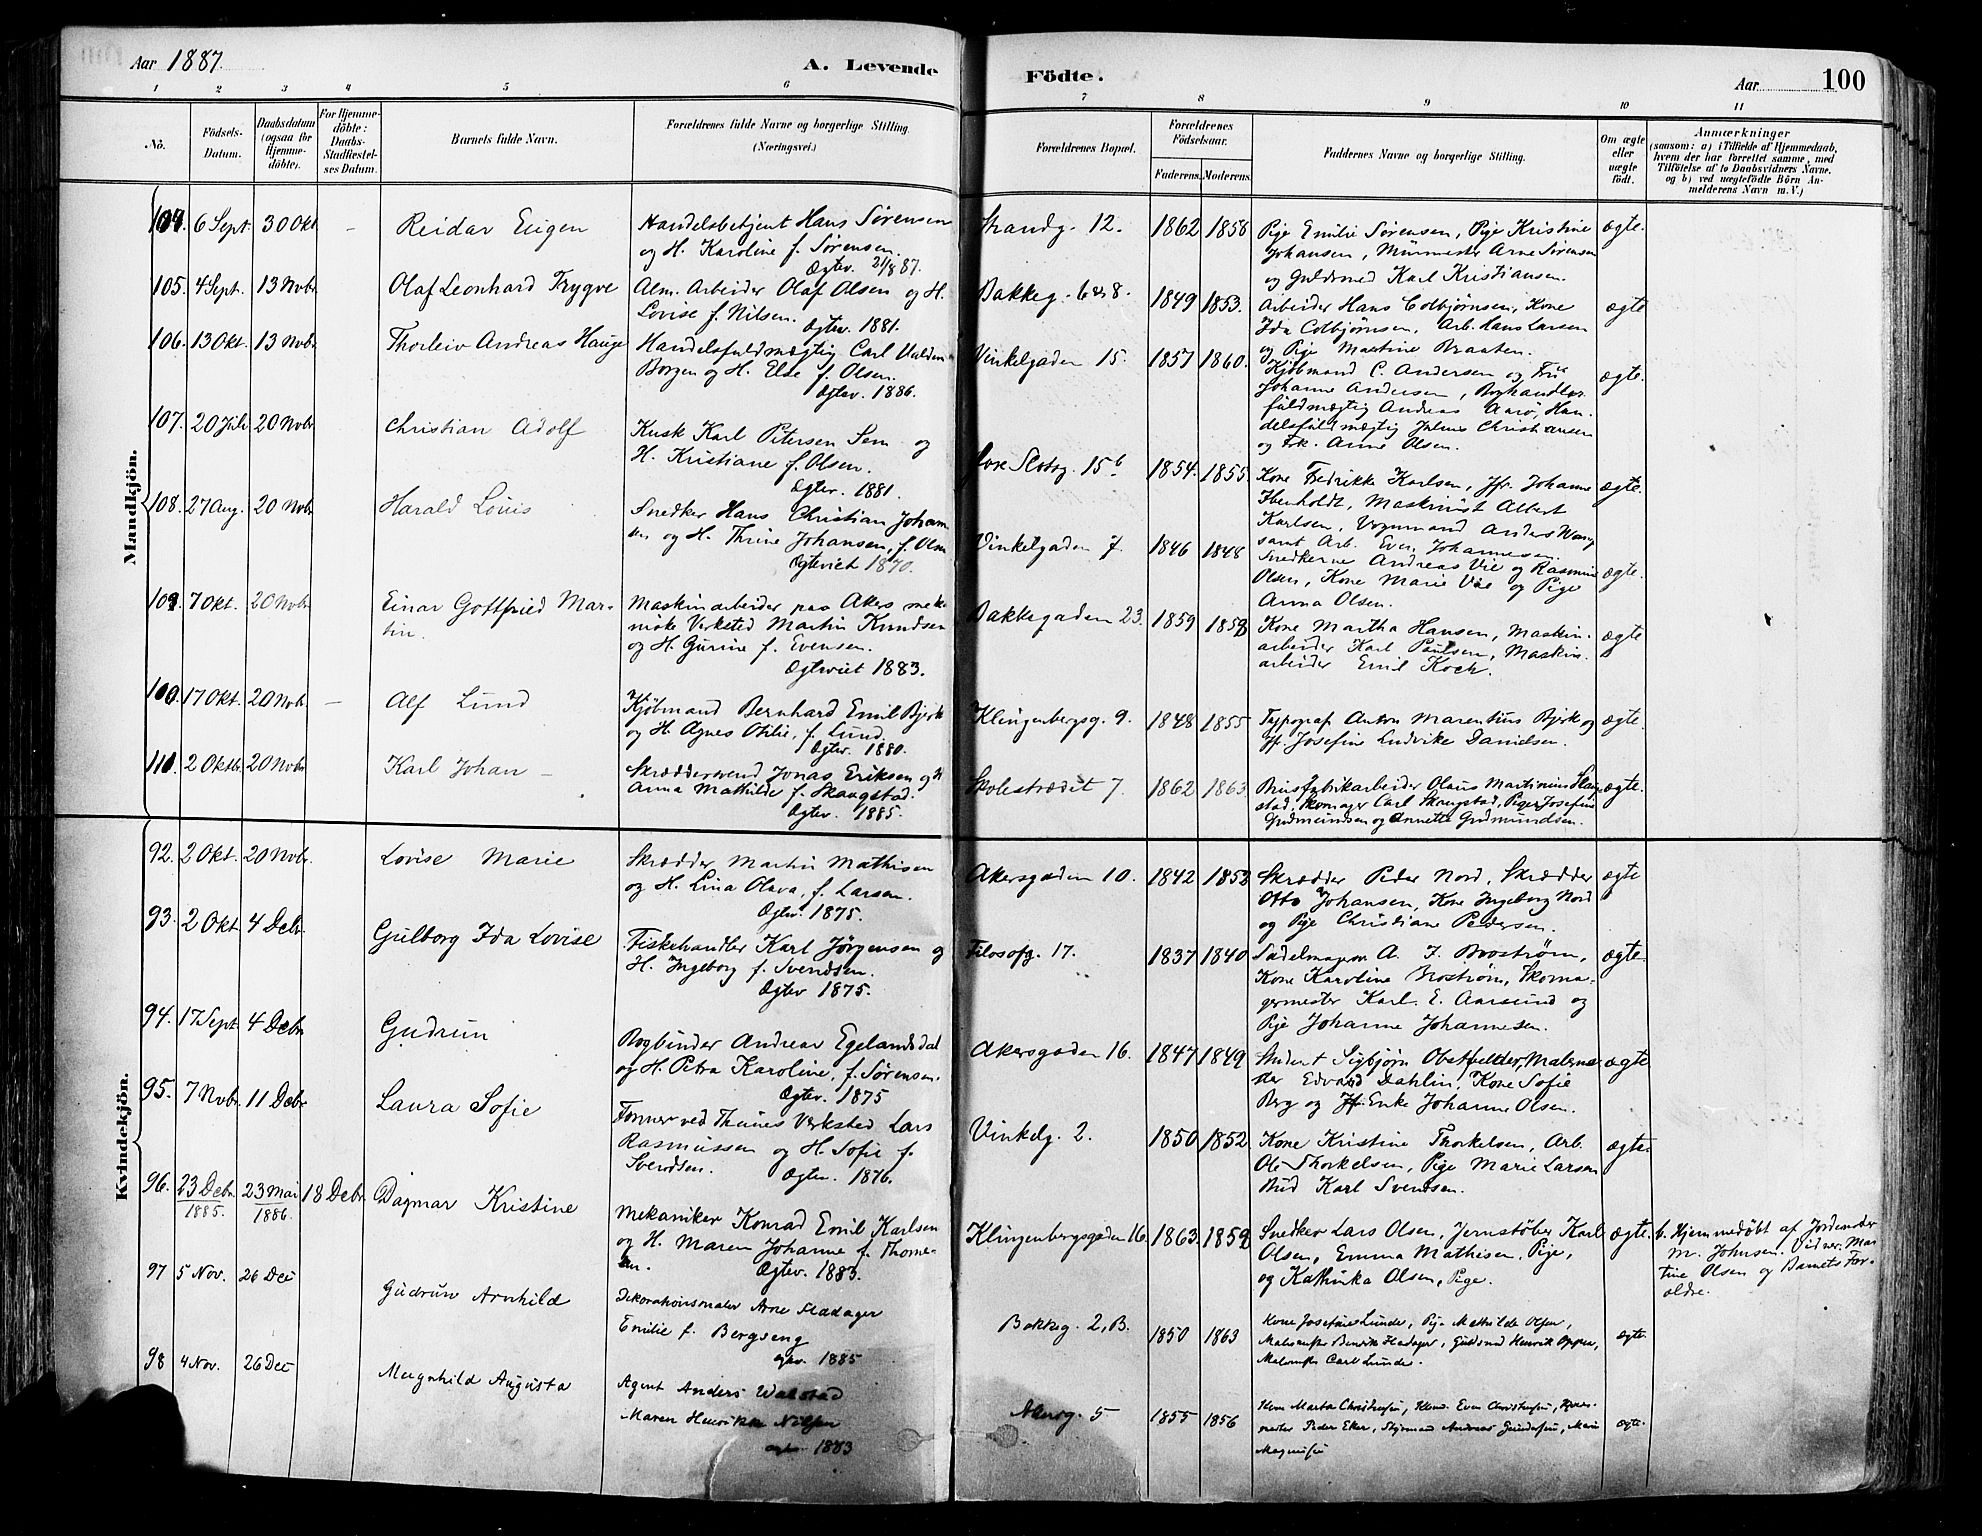 Aar 1887.
A. Levende
Födte.
Aar
100
1 2 3 4 5 6 7 8 9 10 11
No.
Födsels-
Datum.
Daabsdatum
(ogsaa for
Hjemme-
döbte).
For Hjemme-
döbte:
Daabs-
Stadfæstel-
ses Datum.
Barnets fulde Navn.
Forældrenes fulde Navne og borgerlige Stilling.
(Næringsvei.)
Forældrenes Bopæl.
Forældrenes
Födselsaar.
Faderens. Moderens.
Faddernes Navne og borgerlige Stilling.
Om ægte
eller
uægte
födt.
Anmærkninger
(saasom: a) i Tilfælde af Hjemmedaab,
hvem der har forrettet samme, med
Tilföielse af to Daabsvidners Navne.
og b) ved uægtefödte Börn An-
melderens Navn m. V.)
Mandkjön.
104. 6 Sept. 30 Okt. - Reidar Eugen
Handelsbetjent Hans Sørensen
og H. Karoline f. Sørensen.
Ægtev. 21/8 87.
Strandg. 12. 1862 1858
Pige Emilie Sørensen, Pige Kristine
Johansen, Murmester Arne Sørensen
og Guldsmed Karl Kristiansen.
ægte.
105. 4 Sept. 13 Novbr. Olaf Leonhard Trygve
Alm. Arbeider Olaf Olsen og H.
Lovise f. Nilsen.
Ægtev. 1881.
Bakkeg. 6 & 8. 1849 1853.
Arbeider Hans Colbjørnsen, Kone
Ida Colbjørnsen, Arb. Hans Larsen
og Pige Martine Braaten.
ægte
106. 13 Okt. 13 Novbr. Thorleiv Andreas Hauge
Handelsfuldmægtig Carl
Borgen og H. Else f. Olsen.
Ægtev. 1886.
Vinkelgaden 15. 1857 1860.
Kjøbmand C. Andersen og Frue
Johanne Andersen, Boghandler-
fuldmægtig Andreas Aarø, Han-
delsfuldmægtig Julius Christiansen
og Frk. Anne Olsen.
ægte.
107. 20 Juli 20 Novbr. Christian Adolf
Kusk Karl Petersen Sem og
H. Kristiane f. Olsen.
Ægtev. 1881.
Øvre Slotsg. 15 b 1854. 1855.
Kone Fredrikke Karlsen, Jfr. Johanne
Ibenholdt, Maskinist Albert
Karlsen, Vognmand Anders Wang
samt Arb. Even Johannesen.
ægte.
108. 27 Aug. 20 Novbr. Harald Louis
Snedker Hans Christian Johan-
sen og H. Thrine Johansen, f. Olsen
Ægteviet 1870.
Vinkelgaden 7. 1846 1848
Snedkerne Andreas Vie og Rasmus
Olsen, Kone Marie Vie og Pige
Anna Olsen.
ægte.
109. 7 Okt. 20 Novbr. Einar Gottfried Mar-
tin.
Maskinarbeider paa Akers mek-
niske Verksted Martin Knudsen
og H. Gurine f. Evensen.
Ægteviet 1883.
Bakkegaden 23. 1859 1858
Kone Martha Hansen, Maskin-
arbeider Karl Paulsen, Maskin-
arbeider Emil Koch.
ægte
17 Okt. 20 Novbr. - Alf Lund
Kjøbmand Bernhard Emil Bjerk
og H. Agnes Otilie, f. Lund.
Ægtev. 1880.
Klingenbergsg. 9. 1848 1855
Typograf Anton Marentius Bjerk og
Jf. Josefine Ludvike Danielsen.
ægte.
2 Oktb. 20 Novbr. Karl Johan -
Skræddersvend Jonas Eriksen og H.
Anna Mathilde f. Skaugstad.
Ægtev. 1885.
Skolestrædet 7. 1862 1863
Brusfabrikarbeider Olaus Martinius Skaug-
stad, Skomager Carl Skaugstad, Piger Josefine
Gudmundsen og Annette Gudmundsen.
ægte.
Kvindekjön.
92. 2 Okt. 20 Novbr. Lovise Marie
Skrædder Martin Mathisen
og H. Lina Olava, f. Larsen.
Ægtev. 1875.
Akersgaden 10. 1842 1852
Skrædder Peder Nord, Skrædder
Otto Johansen, Kone Ingeborg Nord
og Pige Christiane Pedersen.
ægte
93. 2 Okt. 4 Debr. Gulborg Ida Lovise
Fiskehandler Karl Jørgensen og
H. Ingeborg f. Svendsen.
Ægtev 1875.
Filosofg. 17. 1837 1840
Sadelmager A. J. Brostrøm,
Kone Karoline Brostrøm, Skoma-
germester Karl E. Aarsund og
Pige Johanne Johannesen.
ægte.
94. 17 Sept. 4 Debr. Gudrun
Bogbinder Andreas Egelandsdal
og H. Petra Karoline, f. Sørensen.
Ægtev. 1875
Akersgaden 16. 1847 1849
Student Sigbjørn Obstfelder, Malersven-
der Edvard Dahlin, Kone Sofie
Berg og Enke Johanne Olsen.
ægte
95. 7 Novbr. 11 Debr. Laura Sofie
Former ved Thunes Verksted Lars
Rasmussen og H. Sofie f.
Svendsen.
Ægtev. 1876.
Vinkelg. 2. 1850 1852
Kone Kristine Thorkelsen, Arb.
Ole Thorkelsen, Pige Marie Larsen
Bud Karl Svendsen.
ægte.
96. 23 Debr. 1885. 23 Mai 1886. 18 Debr. Dagmar Kristine
Mekaniker Konrad Emil Karlsen
og H. Maren Johanne f. Thome-
sen.
Ægtev. 1883.
Klingenbergsgaden 16. 1863. 1859
Snedker Lars Olsen, Jernstøber Karl
Olsen, Emma Mathisen, Pige,
og Kathinka Olsen, Pige.
ægte.
b. Hjemmedøbt af Jordemoder
M. Johnsen. Vidner: Mar-
tine Olsen og Barnets For-
ældre.
97 5 Nov. 26 Dec Gudrun Arnhild
Dekorationsmaler Arne Hadager
Emilie f. Bergseng
ægtev. 1885
Bakkeg. 2, B. 1850 1863
Kone Josefine Lunde, Pige Mathilde Olsen,
Malersvend Henrik Hadager, Guldsmed Henrik Oppen,
Malersvend Carl Lunde.
ægte.
98 4 Nov. 26 Dec Magnhild Augusta
Agent Anders Walstad
Maren Henrikke Nilsen
ægtev. 1883
Akersg. 5 1855 1856
Kone Marta Christensen, Kbmd. Even Christensen,
mester Peder Eker, Styrmand Andreas Gundersen, Marie
Magnusen
ægte.